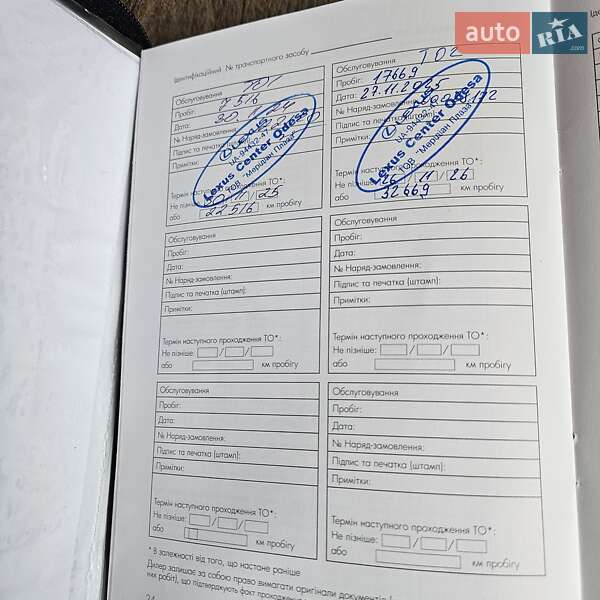 auto RIA .com
Ідентифікаційний № транспортного засобу
Обслуговування ТО1
Пробіг: 7516
Дата: 30
№ Наряд-замовлення:
Підпис та печатка (штамп):
Примітки:
Lexus Center Odesa
ТОВ "Мерідіан Плаза"
Термін наступного проходження ТО*:
Не пізніше: 30/11/25
або 22516 км пробігу
Обслуговування ТО2
Пробіг: 17669
Дата: 27.11.2025
№ Наряд-замовлення:
Підпис та печатка (штамп)
Примітки:
Lexus Center Odesa
ТОВ "Мерідіан Плаза"
Термін наступного проходження ТО*:
Не пізніше: 26/11/26
або 32669 км пробігу
Обслуговування
Пробіг:
Дата:
№ Наряд-замовлення:
Підпис та печатка (штамп):
Примітки:
Термін наступного проходження ТО*:
Не пізніше: / /
або км пробігу
Обслуговування
Пробіг:
Дата:
№ Наряд-замовлення:
Підпис та печатка (штамп):
Примітки:
Термін наступного проходження ТО*:
Не пізніше: / /
або км пробігу
Обслуговування
Пробіг:
Дата:
№ Наряд-замовлення:
Підпис та печатка (штамп):
Примітки:
Термін наступного проходження ТО*:
Не пізніше: / /
або км пробігу
Обслуговування
Пробіг:
Дата:
№ Наряд-замовлення:
Підпис та печатка (штамп):
Примітки:
Термін наступного проходження ТО*:
Не пізніше: / /
або км пробігу
* В залежності від того, що настане раніше
Дилер залишає за собою право вимагати оригінали документів
них робіт), що підтверджують факт проходження